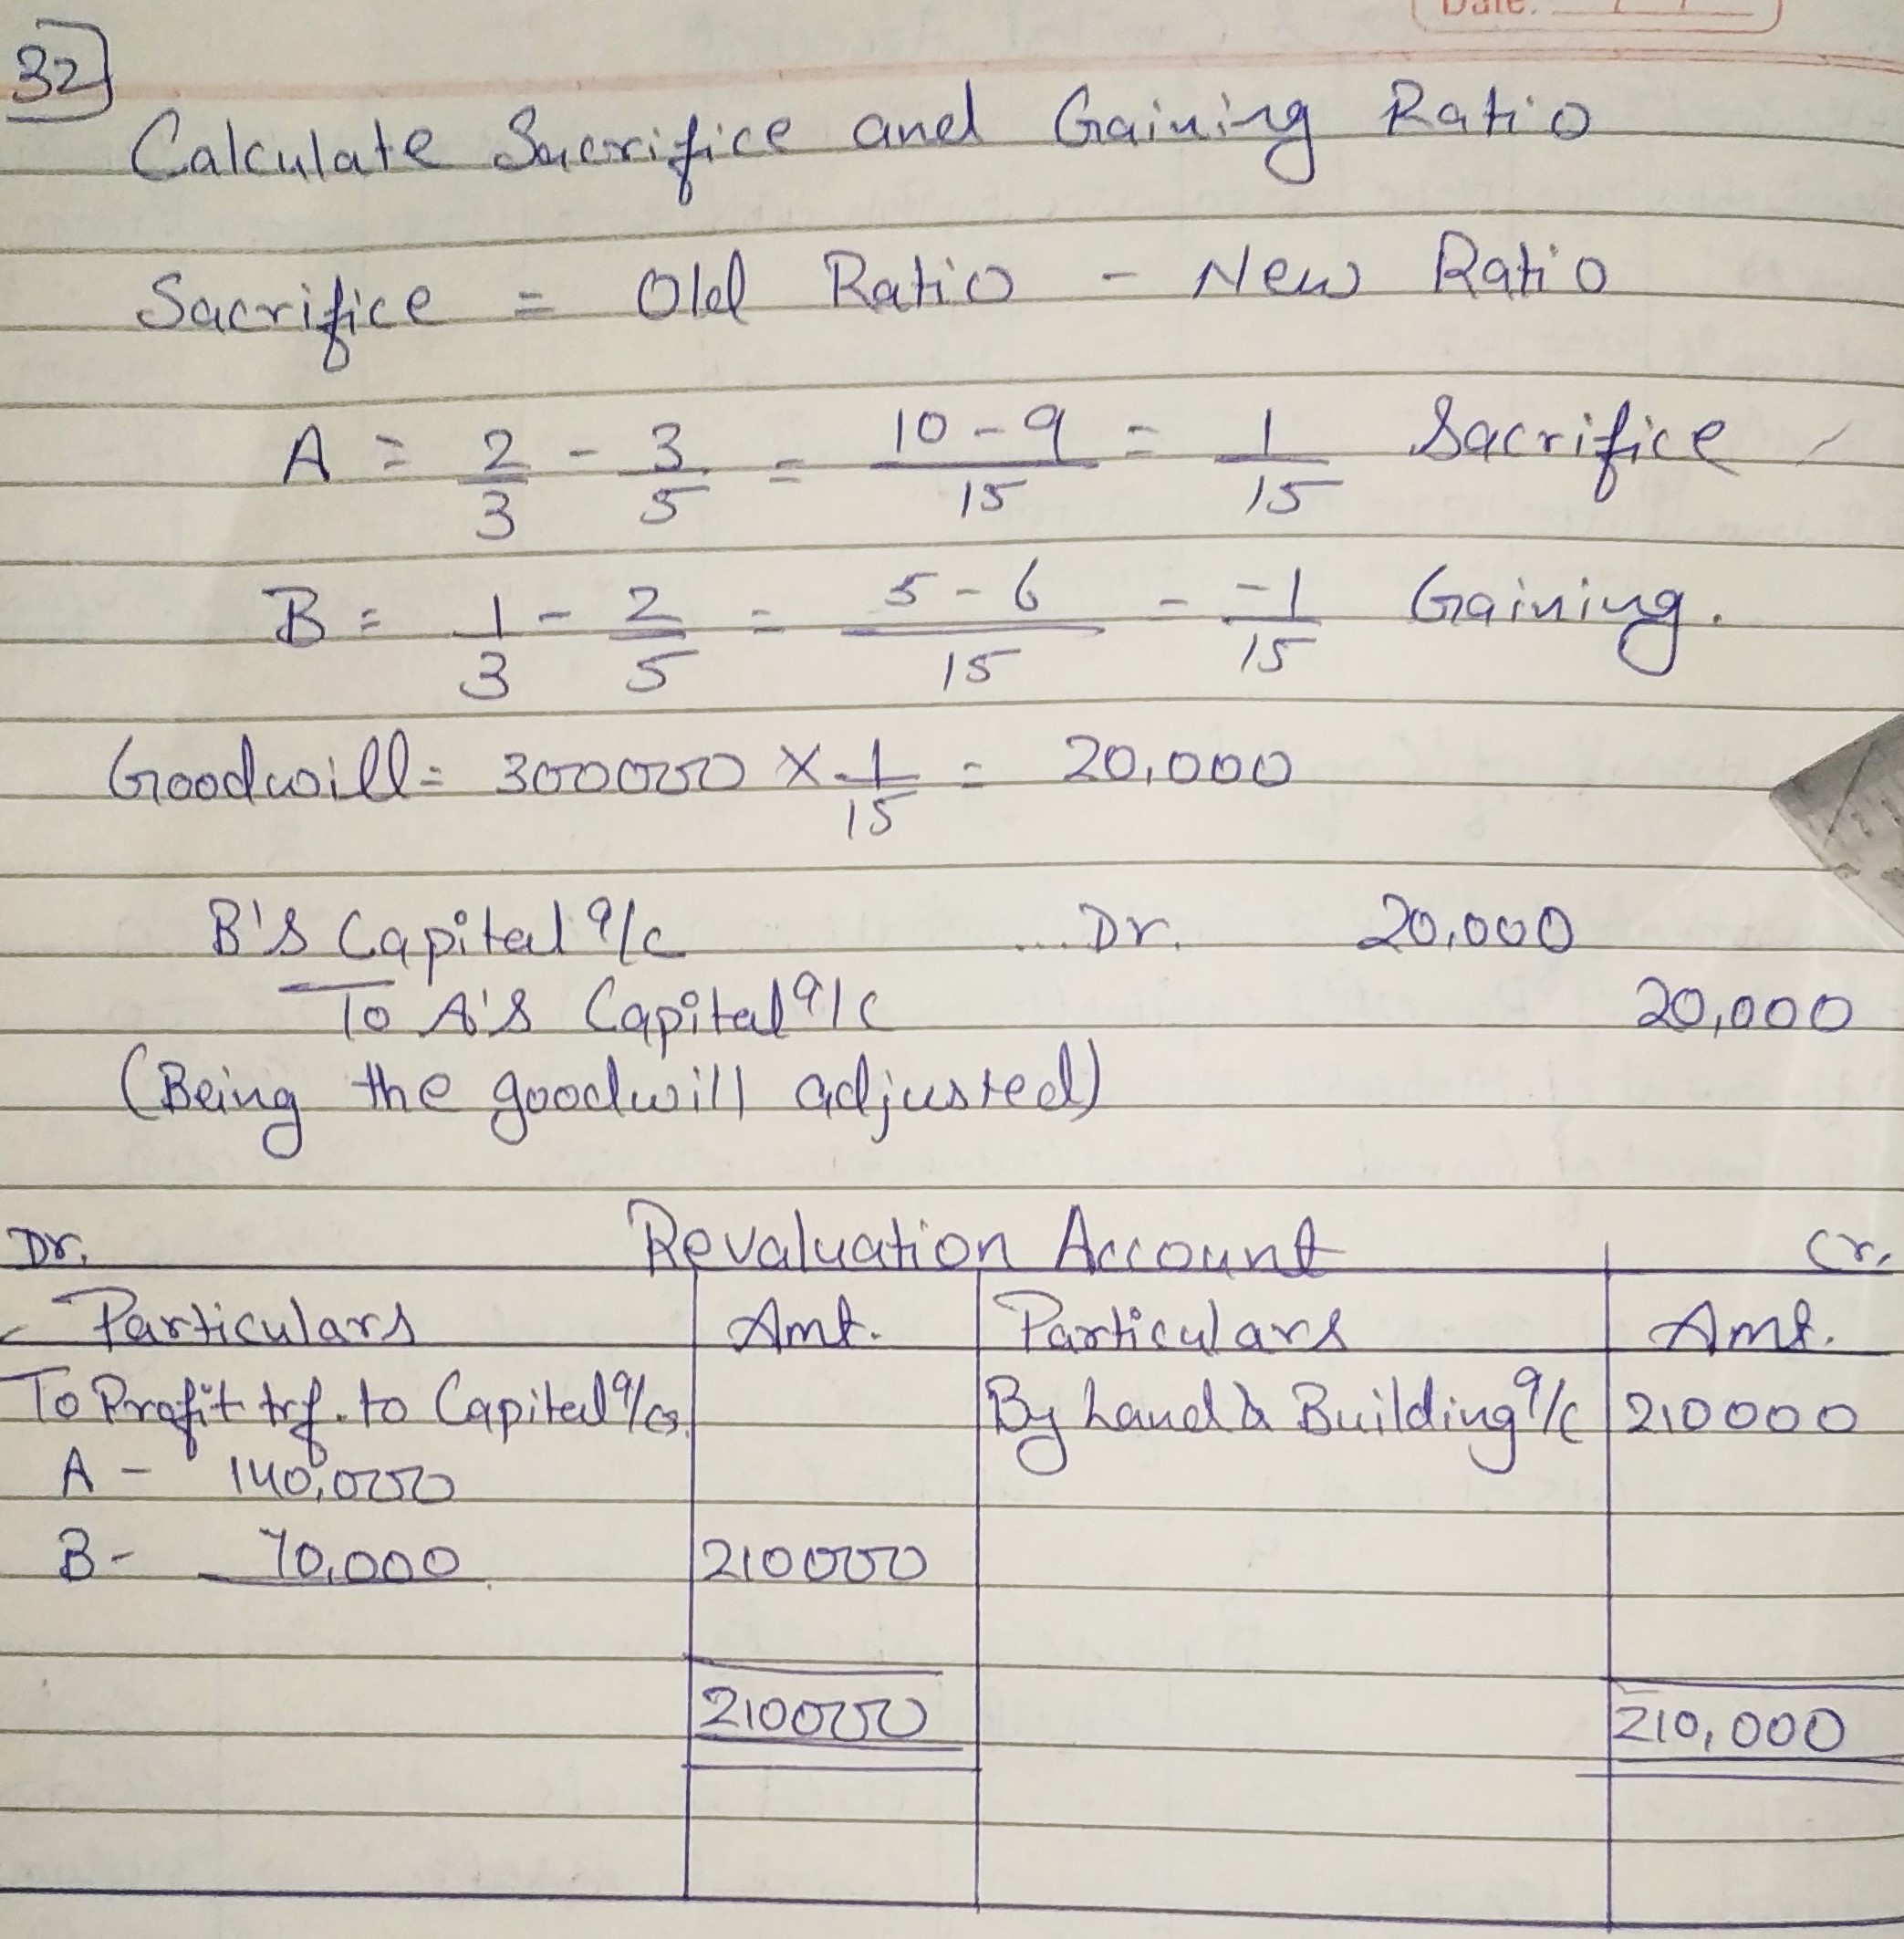 Date.
32
Calculate Sacrifice and Gaining Ratio
Sacrifice = Old Ratio - New Ratio
A = 2/3 - 3/5 = 10-9/15 = 1/15 Sacrifice
B = 1/3 - 2/5 = 5-6/15 = -1/15 Gaining.
Goodwill = 300000 × 1/15 = 20,000
B's Capital a/c ... Dr. 20,000
To A's Capital a/c 20,000
(Being the goodwill adjusted)
Dr. Revaluation Account Cr.
Particulars Amt. Particulars Amt.
To Profit trf. to Capital a/cs. By Land & Building a/c 210000
A - 140,000
B - 70,000 210000
210000 210,000